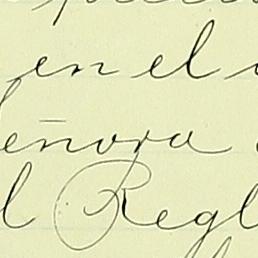 en el
eñora
l Regl